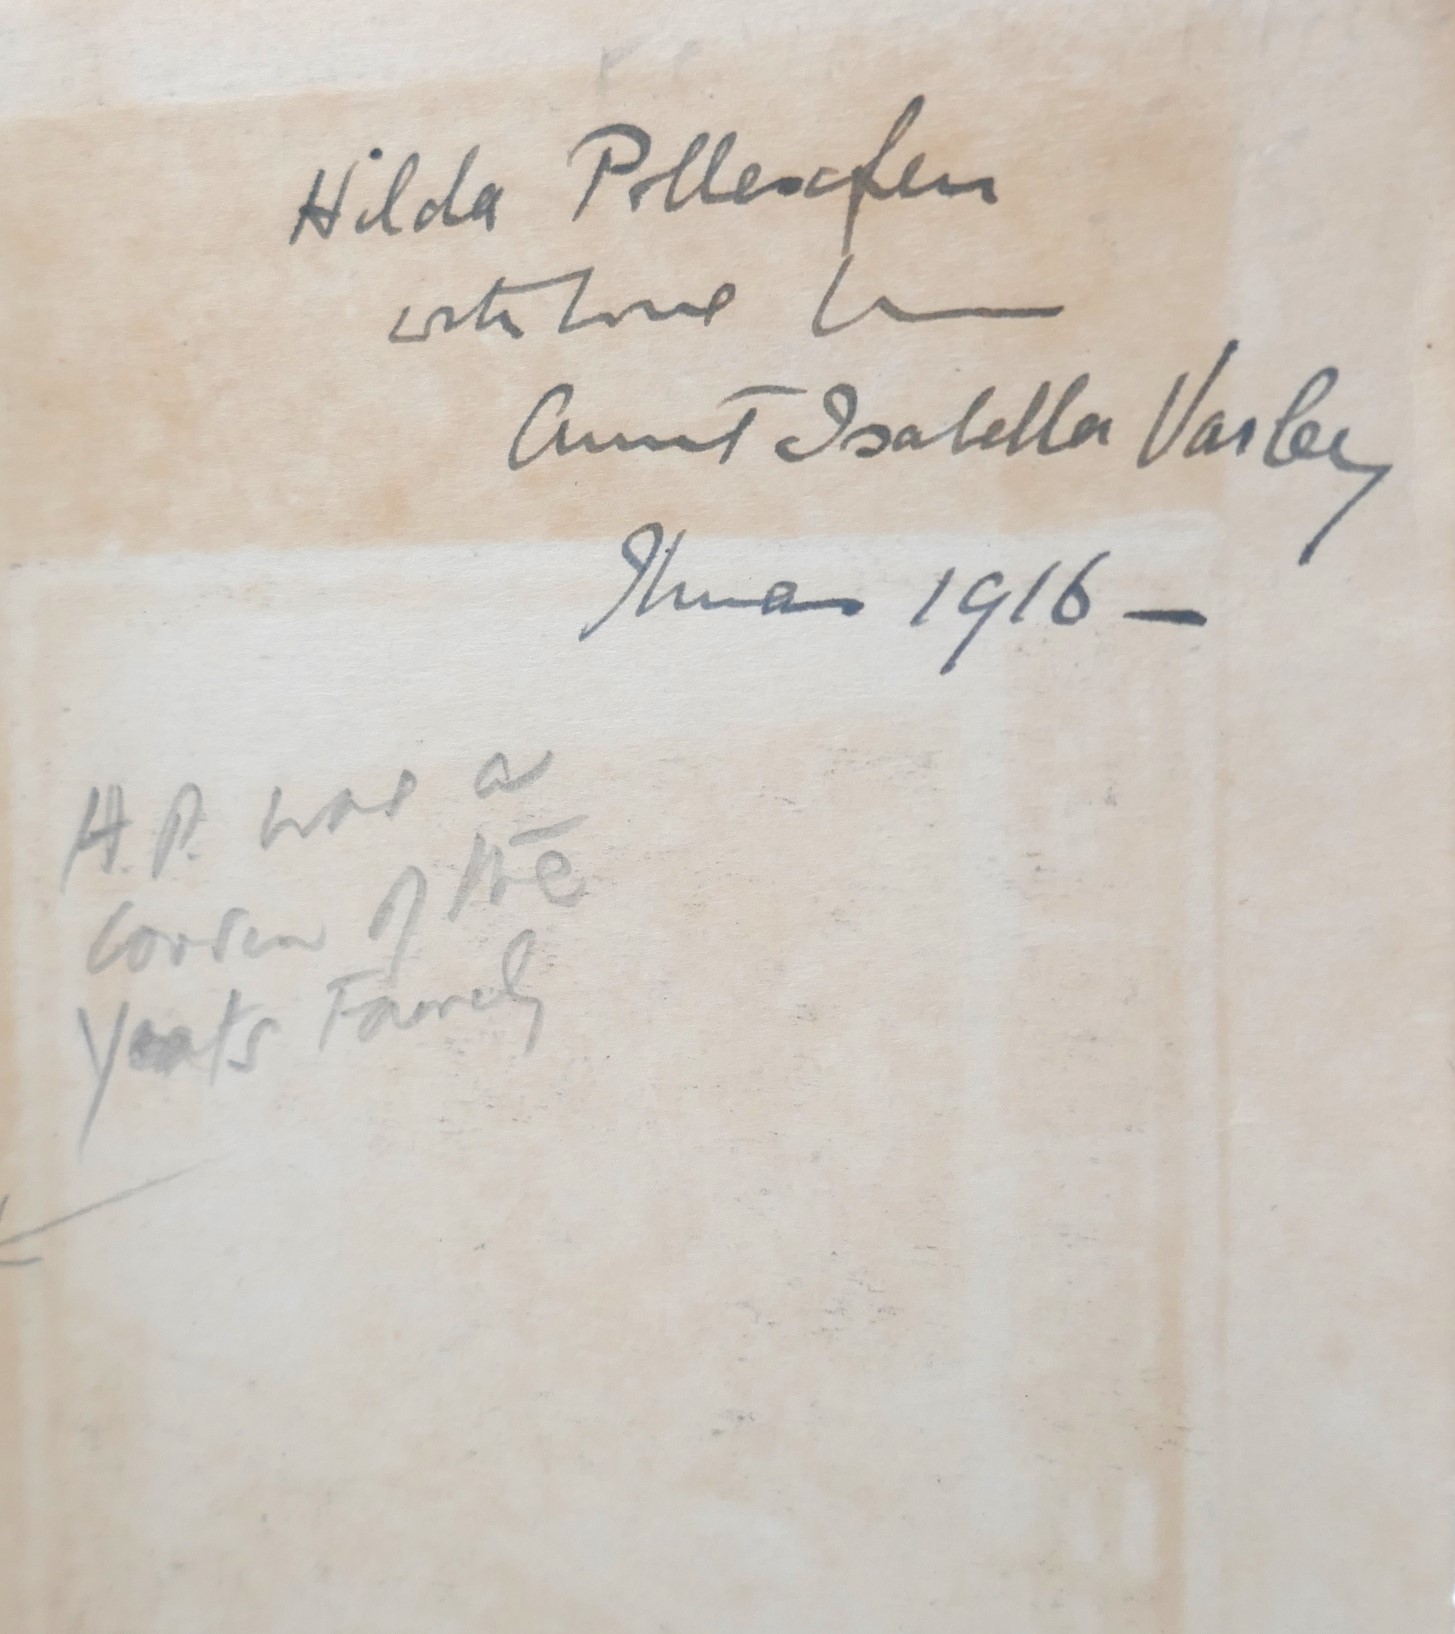 Hilda Pollexfen
with love from
Aunt Isabella Varley
Xmas 1916 —
H.P. was a
cousin of the
Yeats Family